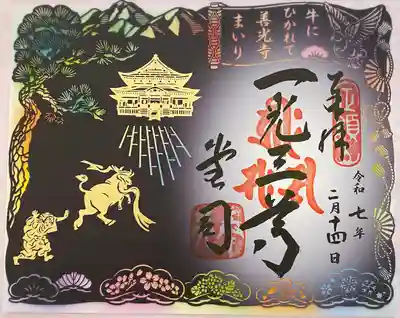 牛に
ひかれて
善光寺
まいり
奉拝
一光三尊
堂司
令和七年
二月十四日